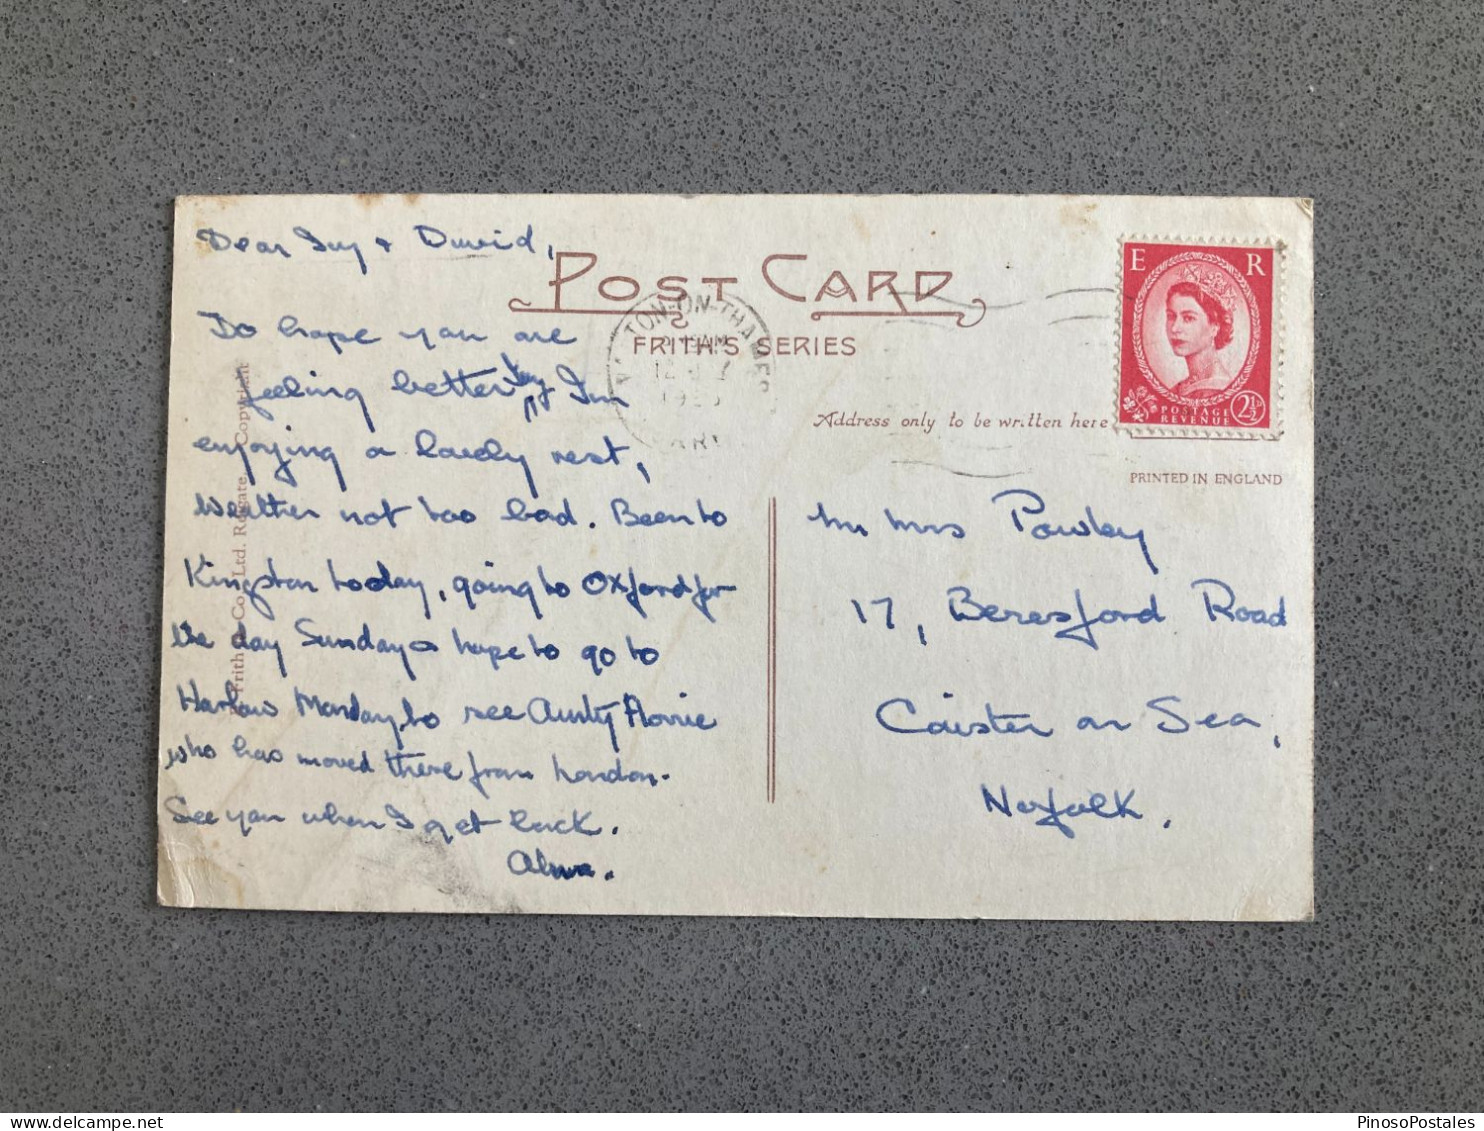 Dear Ivy & David,
Do hope you are
feeling better Ivy I'm
enjoying a lovely rest,
Weather not too bad. Been to
Kingston today, going to Oxford for
the day Sunday & hope to go to
Harlow Monday to see Aunty Florrie
who has moved there from London.
See you when I get back.
Alma.
POST CARD
FRITH'S SERIES
TON-ON-THAMES
Address only to be written here
E R
POSTAGE
REVENUE
2½
PRINTED IN ENGLAND
Mr Mrs Powley
17, Beresford Road
Caister on Sea,
Norfolk.
Frith & Co., Ltd. Reigate. Copyright
PinosoPostales